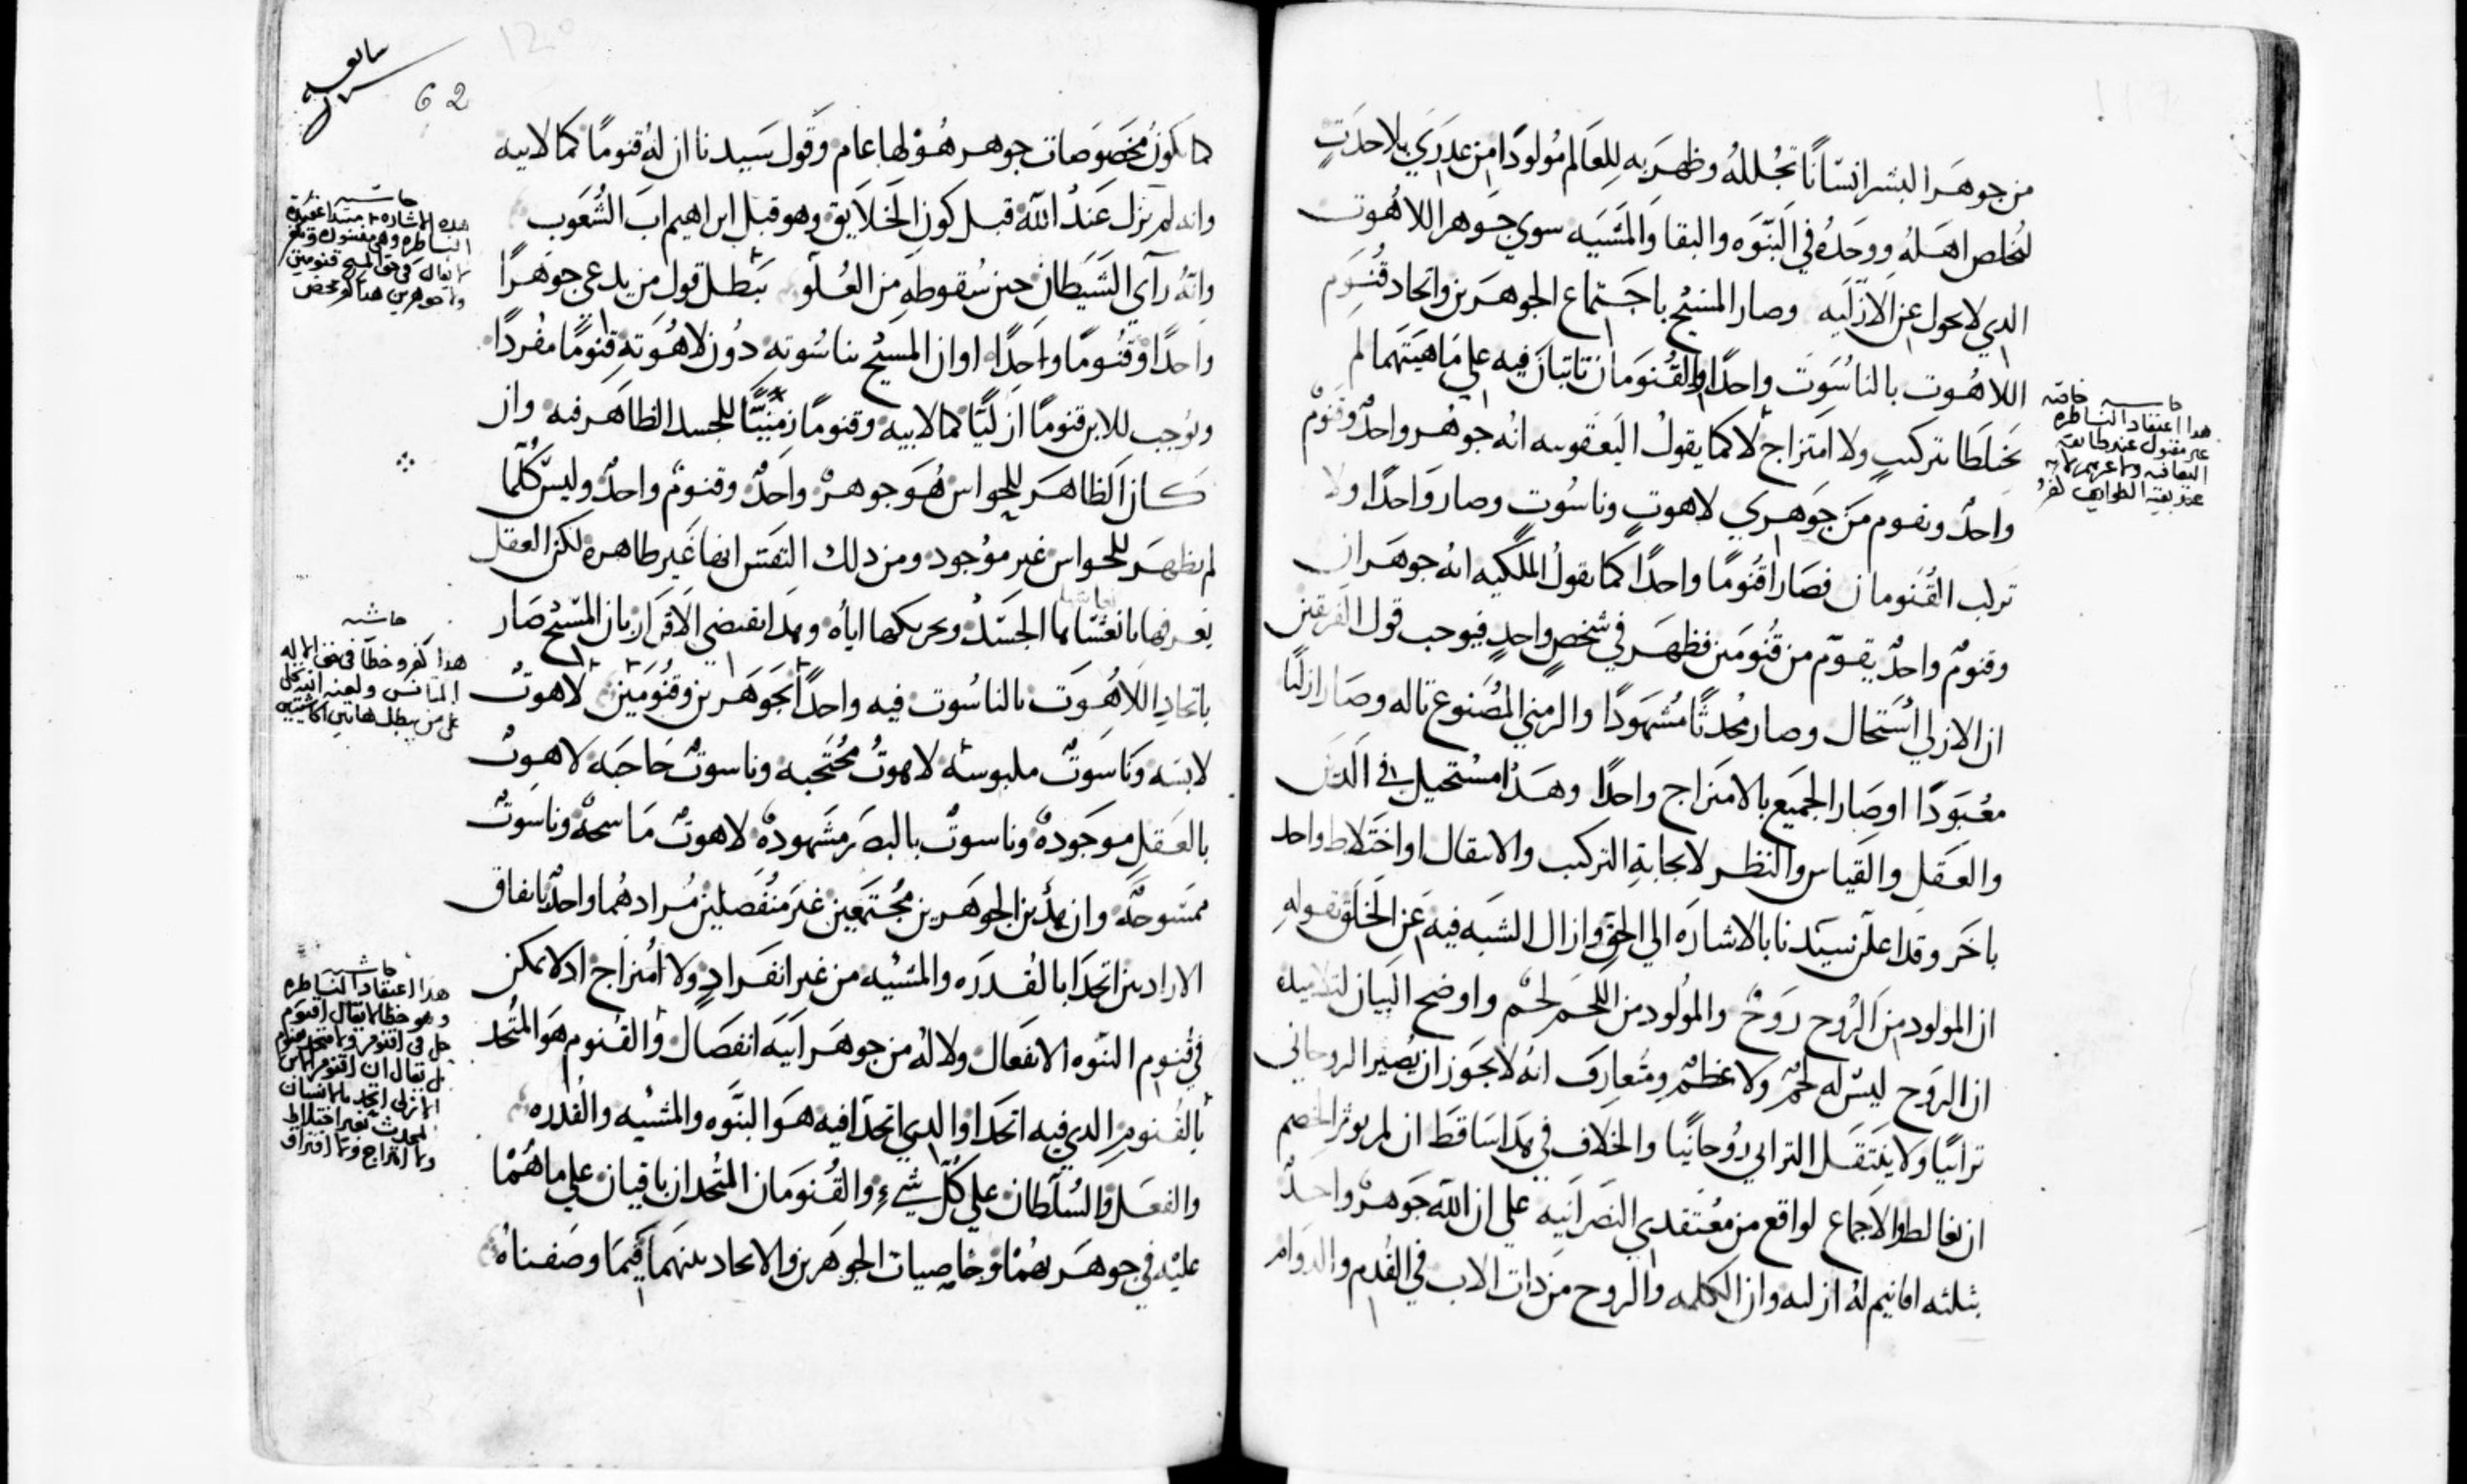 من جوهر البشر انسانًا تجلله وظهر به للعالم مولودًا من عدري بلا حدث
لخلص اهله ووحده في البنوه والبقا والمشيه سوي جوهر اللاهوت
الدي لا يحول عن الازليه وصار المسيح باجتماع الجوهرين واتحاد قنوم
اللاهوت بالناسوت واحدًا والقنومان تابتان فيه علي ماهيتهما لم
يختلطا بتركيب ولا امتزاج لا كما يقول اليعقوبيه انه جوهر واحد وقنوم
واحد وتقوم من جوهري لاهوت وناسوت وصار واحدًا ولا
تركب القنومان فصارا قنومًا واحدًا كما يقول الملكيه انه جوهران
وقنوم واحد يقوم من قنومين فظهر في شخص واحد فيوجب قول الفريقين
ان الازلي استحال وصار محدثًا مشهودًا والزمني المصنوع تاله وصار ازليًا
معبودًا او صار الجميع بالامتزاج واحدًا وهدا مستحيل في
والعقل والقياس والنظر لايجابه التركيب والانتقال او اختلاط واحد
باخر وقد اعلن سيدنا بالاشاره الي الحق وازال الشبه فيه عن الخلق بقوله
ان المولود من الروح روح والمولود من اللحم لحم واوضح البيان لتلاميده
ان الروح ليس له لحم ولا عظم ومتعارف انه لا يجوز ان يصير الروحاني
ترابيًا ولا ينتقل الترابي روحانيًا والخلاف في هدا ساقط ان لم يوثر الخصم
ان يغالط والاجماع لواقع من معتقدي النصرانيه علي ان الله جوهر واحد
بثلثه اقانيم له ازليه وان الكلمه والروح من دات الاب في القدم والدوام
حاشيه خاصه
هدا اعتقاد النساطره
غير مقبول عند طائفه
62
كما يكون مخصوصات جوهر هو لها عام وقول سيدنا ان له قنومًا كما لابيه
وانه لم يزل عند الله قبل كون الخلايق وهو قبل ابراهيم اب الشعوب
وانه رآي الشيطان حين سقوطه من العلو يبطل قول من يدعي جوهرًا
واحدًا وقنومًا واحدًا او ان المسيح بناسوته دون لاهوته قنومًا مفردًا
ويوجب للابن قنومًا ازليًا كما لابيه وقنومًا زمنيًا للجسد الظاهر فيه وان
كان الظاهر للحواس هو جوهر واحد وقنوم واحد وليس كلما
لم يظهر للحواس غير موجود ومن دلك النفس انها غير ظاهره لكن العقل
يعرفها بانعاشها الجسد وتحريكها اياه وهدا يقتضي الاقرار بان المسيح صار
باتحاد اللاهوت بالناسوت فيه واحدًا بجوهرين وقنومين لاهوت
لابسه وناسوت ملبوسه لاهوت محتجبه وناسوت حاجبه لاهوت
بالعقل موجوده وناسوت بالبصر مشهوده لاهوت ماسحه وناسوت
ممسوحه وان هدين الجوهرين مجتمعين غير منفصلين مرادهما واحد باتفاق
الارادتين اتحدا بالقدره والمشيه من غير انفراد ولا امتزاج اد لا يمكن
في قنوم البنوه الانفعال ولا له من جوهر ابيه انفصال والقنوم هو المتحد
بالقنوم الدي فيه اتحدا والدي اتحدا فيه هو البنوه والمشيه والقدره
والفعل والسلطان علي كل شي والقنومان المتحدان باقيان علي ما هما
عليه في جوهريهما وخاصيات الجوهرين والاتحاد بينهما فيما وصفناه
حاشيه
حاشيه
هدا كفر وخطا في حق الاله
حاشيه
هدا اعتقاد النساطره
وهو خطا لا يقال اقنوم
حل في اقنوم